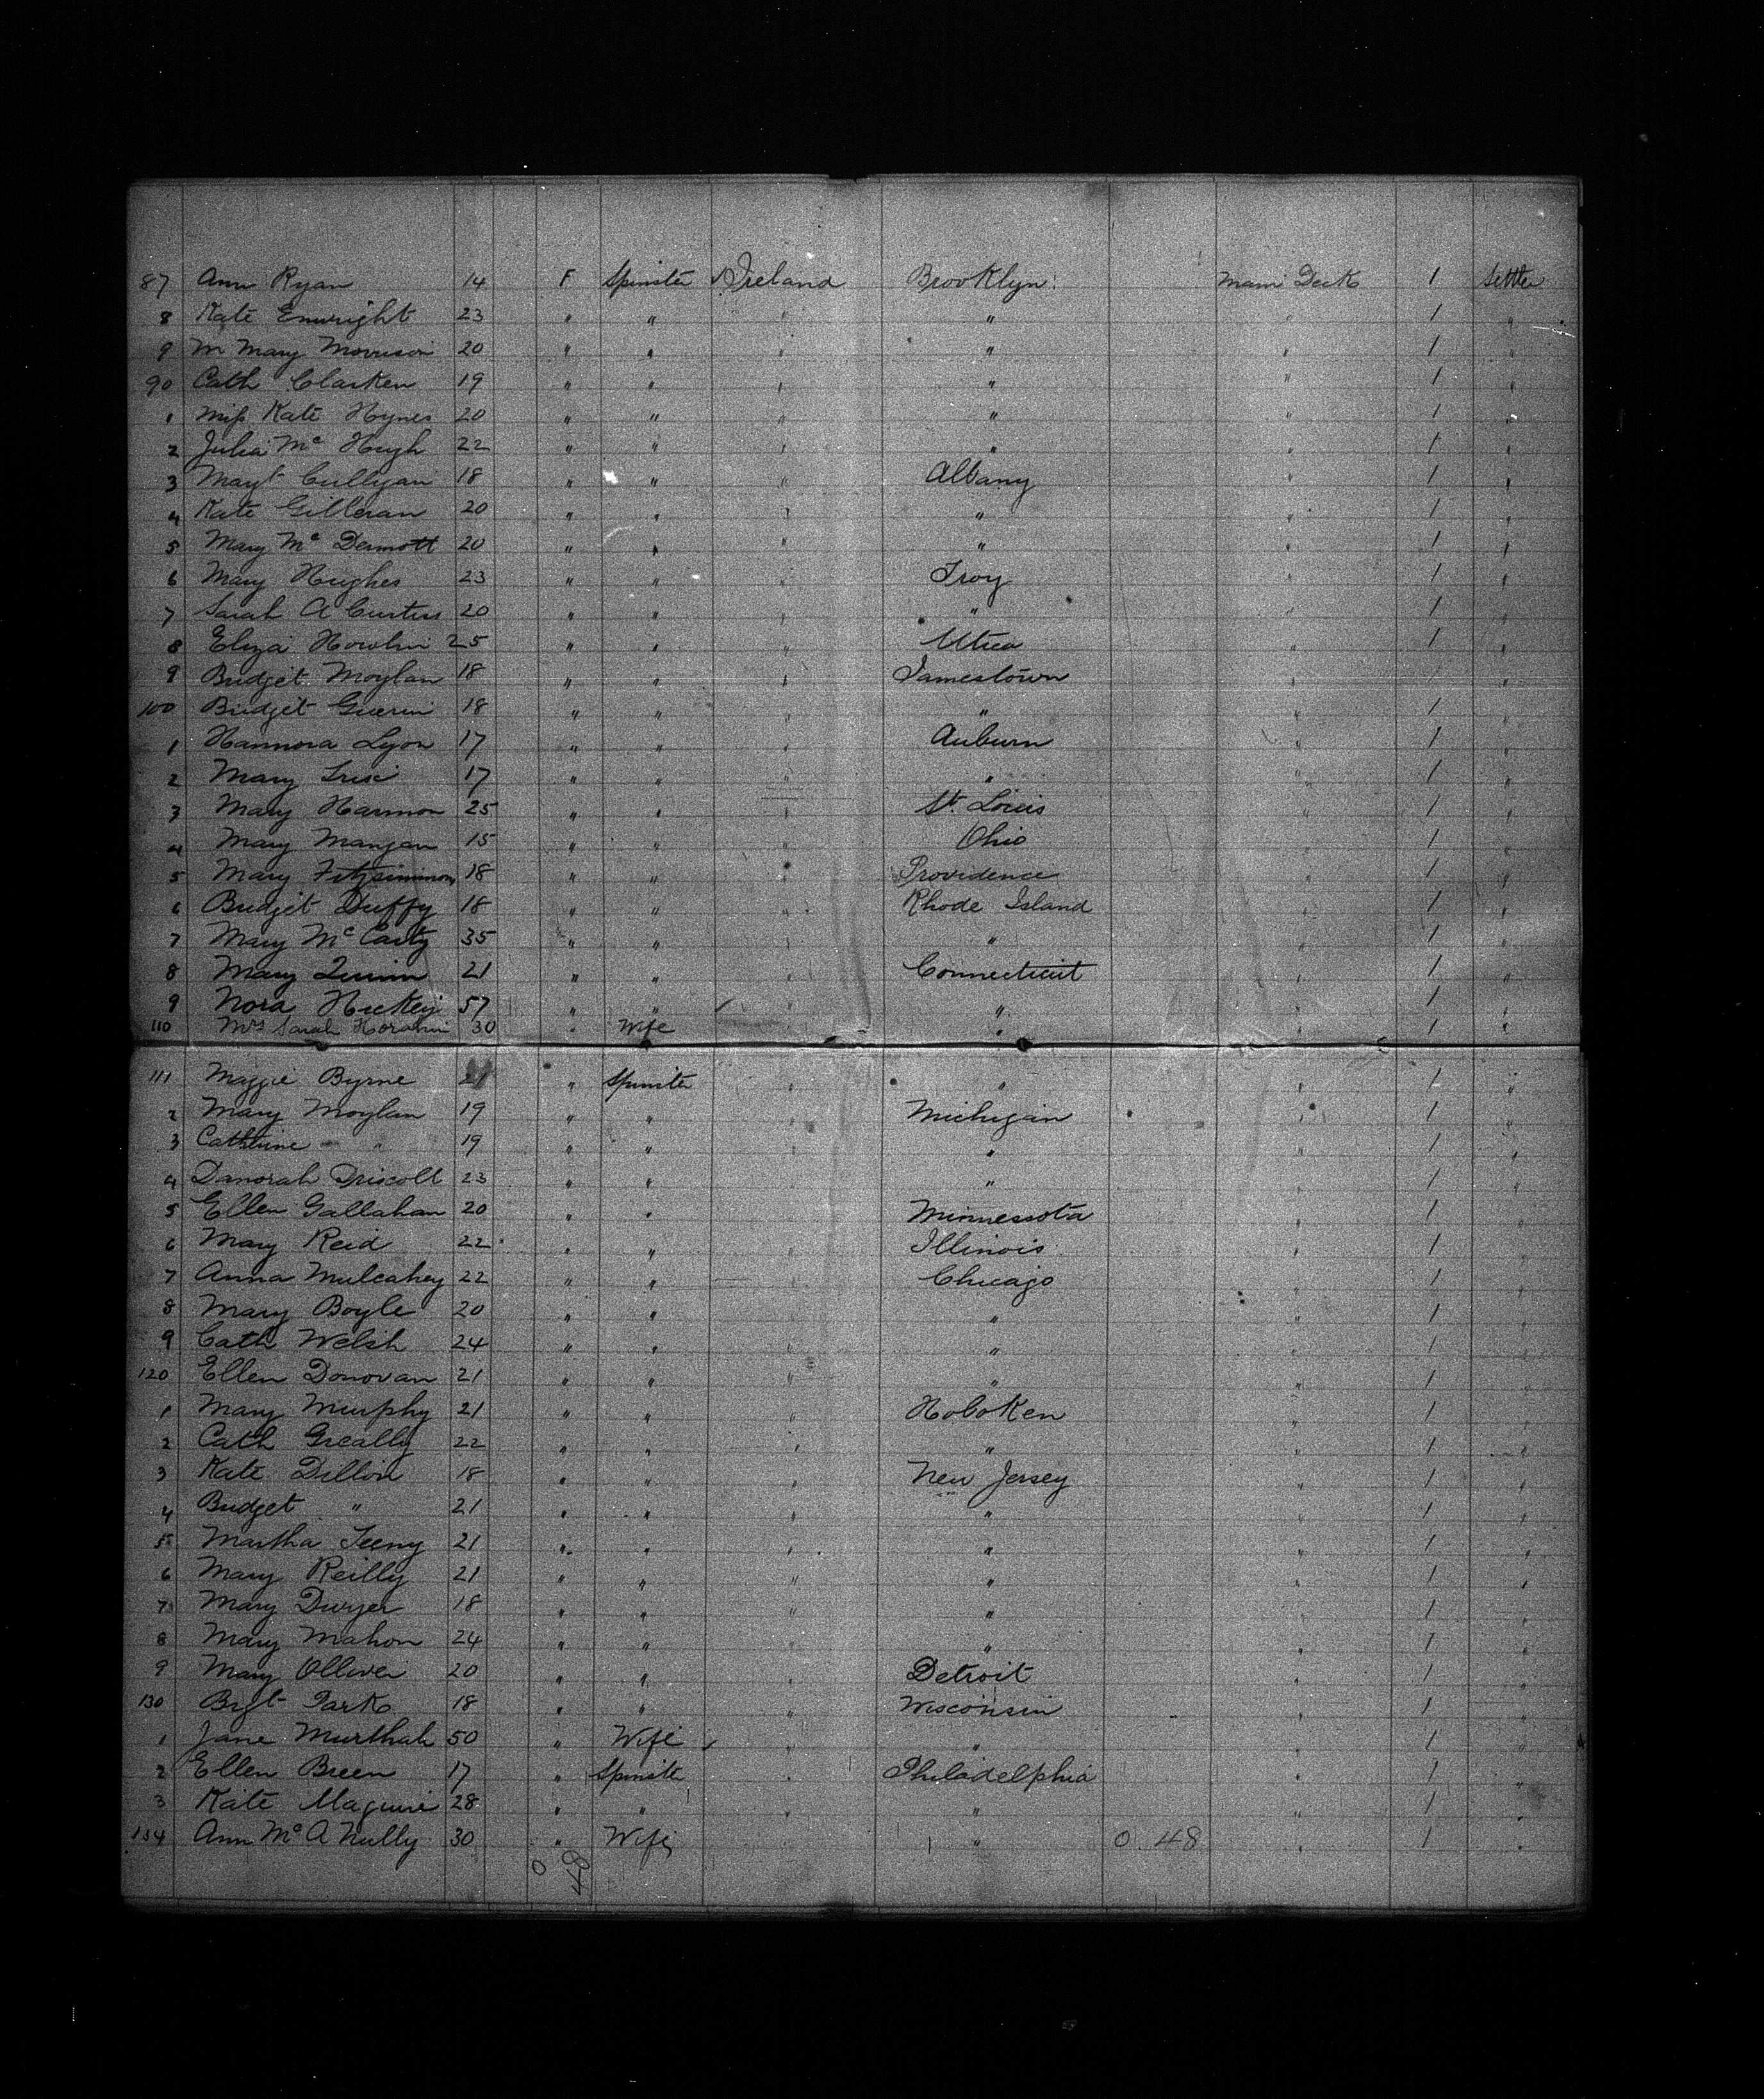 87 Ann Ryan 14 F Spinster Ireland Brooklyn Main Deck 1 Settler
8 Kate Enwright 23 " " " " " 1 "
9 M Mary Morrison 20 " " " " " 1 "
90 Cath Clarken 19 " " " " " 1 "
1 Miss Kate Hynes 20 " " " " " 1 "
2 Julia Mc Hugh 22 " " " " " 1 "
3 Magt Cullyan 18 " " " Albany " 1 "
4 Kate Gilleran 20 " " " " " 1 "
5 Mary Mc Dermott 20 " " " " " 1 "
6 Mary Hughes 23 " " " Troy " 1 "
7 Sarah A Curtus 20 " " " " " 1 "
8 Eliza Howlin 25 " " " Utica " 1 "
9 Bridget Moylan 18 " " " Jamestown " "
100 Bridget Guerin 18 " " " " " 1 "
1 Hannora Lyon 17 " " " Auburn " 1 "
2 Mary 17 " " " " " 1 "
3 Mary Harmon 25 " " " St. Louis " 1 "
4 Mary Mangan 15 " " " Ohio " 1 "
5 Mary Fitzsimmons 18 " " " Providence " 1 "
6 Bridget Duffy 18 " " " Rhode Island " 1 "
7 Mary Mc Carty 35 " " " " " 1 "
8 Mary Quinn 21 " " " Connecticut " 1 "
9 Nora Hickey 57 " " " " " 1 "
110 Mrs Sarah 30 " Wife " " 1 "
111 Maggie Byrne 21 " Spinster " " " 1 "
2 Mary Moylan 19 " " " Michigan " 1 "
3 Cathrine " 19 " " " " " 1 "
4 Danorah Driscoll 23 " " " " " 1 "
5 Ellen Gallahan 20 " " " Minnessota " 1 "
6 Mary Reid 22 " " " Illinois " 1 "
7 Anna Mulcahey 22 " " " Chicago " 1 "
8 Mary Boyle 20 " " " " " 1 "
9 Cath Welsh 24 " " " " " 1 "
120 Ellen Donovan 21 " " " " " 1 "
1 Mary Murphy 21 " " " Hoboken " 1 "
2 Cath Greally 22 " " " " " 1 "
3 Kate Dillon 18 " " " New Jersey " 1 "
4 Bridget " 21 " " " " " 1 "
5 Martha Feeny 21 " " " " " 1 "
6 Mary Reilly 21 " " " " " 1 "
7 Mary Dwyer 18 " " " " " 1 "
8 Mary Mahon 24 " " " " " 1 "
9 Mary Olliver 20 " " " Detroit " 1 "
130 Bgt Park 18 " " " Wisconsin " 1 "
1 Jane Murthah 50 " Wife " " " 1 "
2 Ellen Breen 17 " Spinster " Philadelphia " 1 "
3 Kate Maguire 28 " " " " " 1 "
134 Ann Mc A Nully 30 " Wife " 0 48 " 1 "
0 48